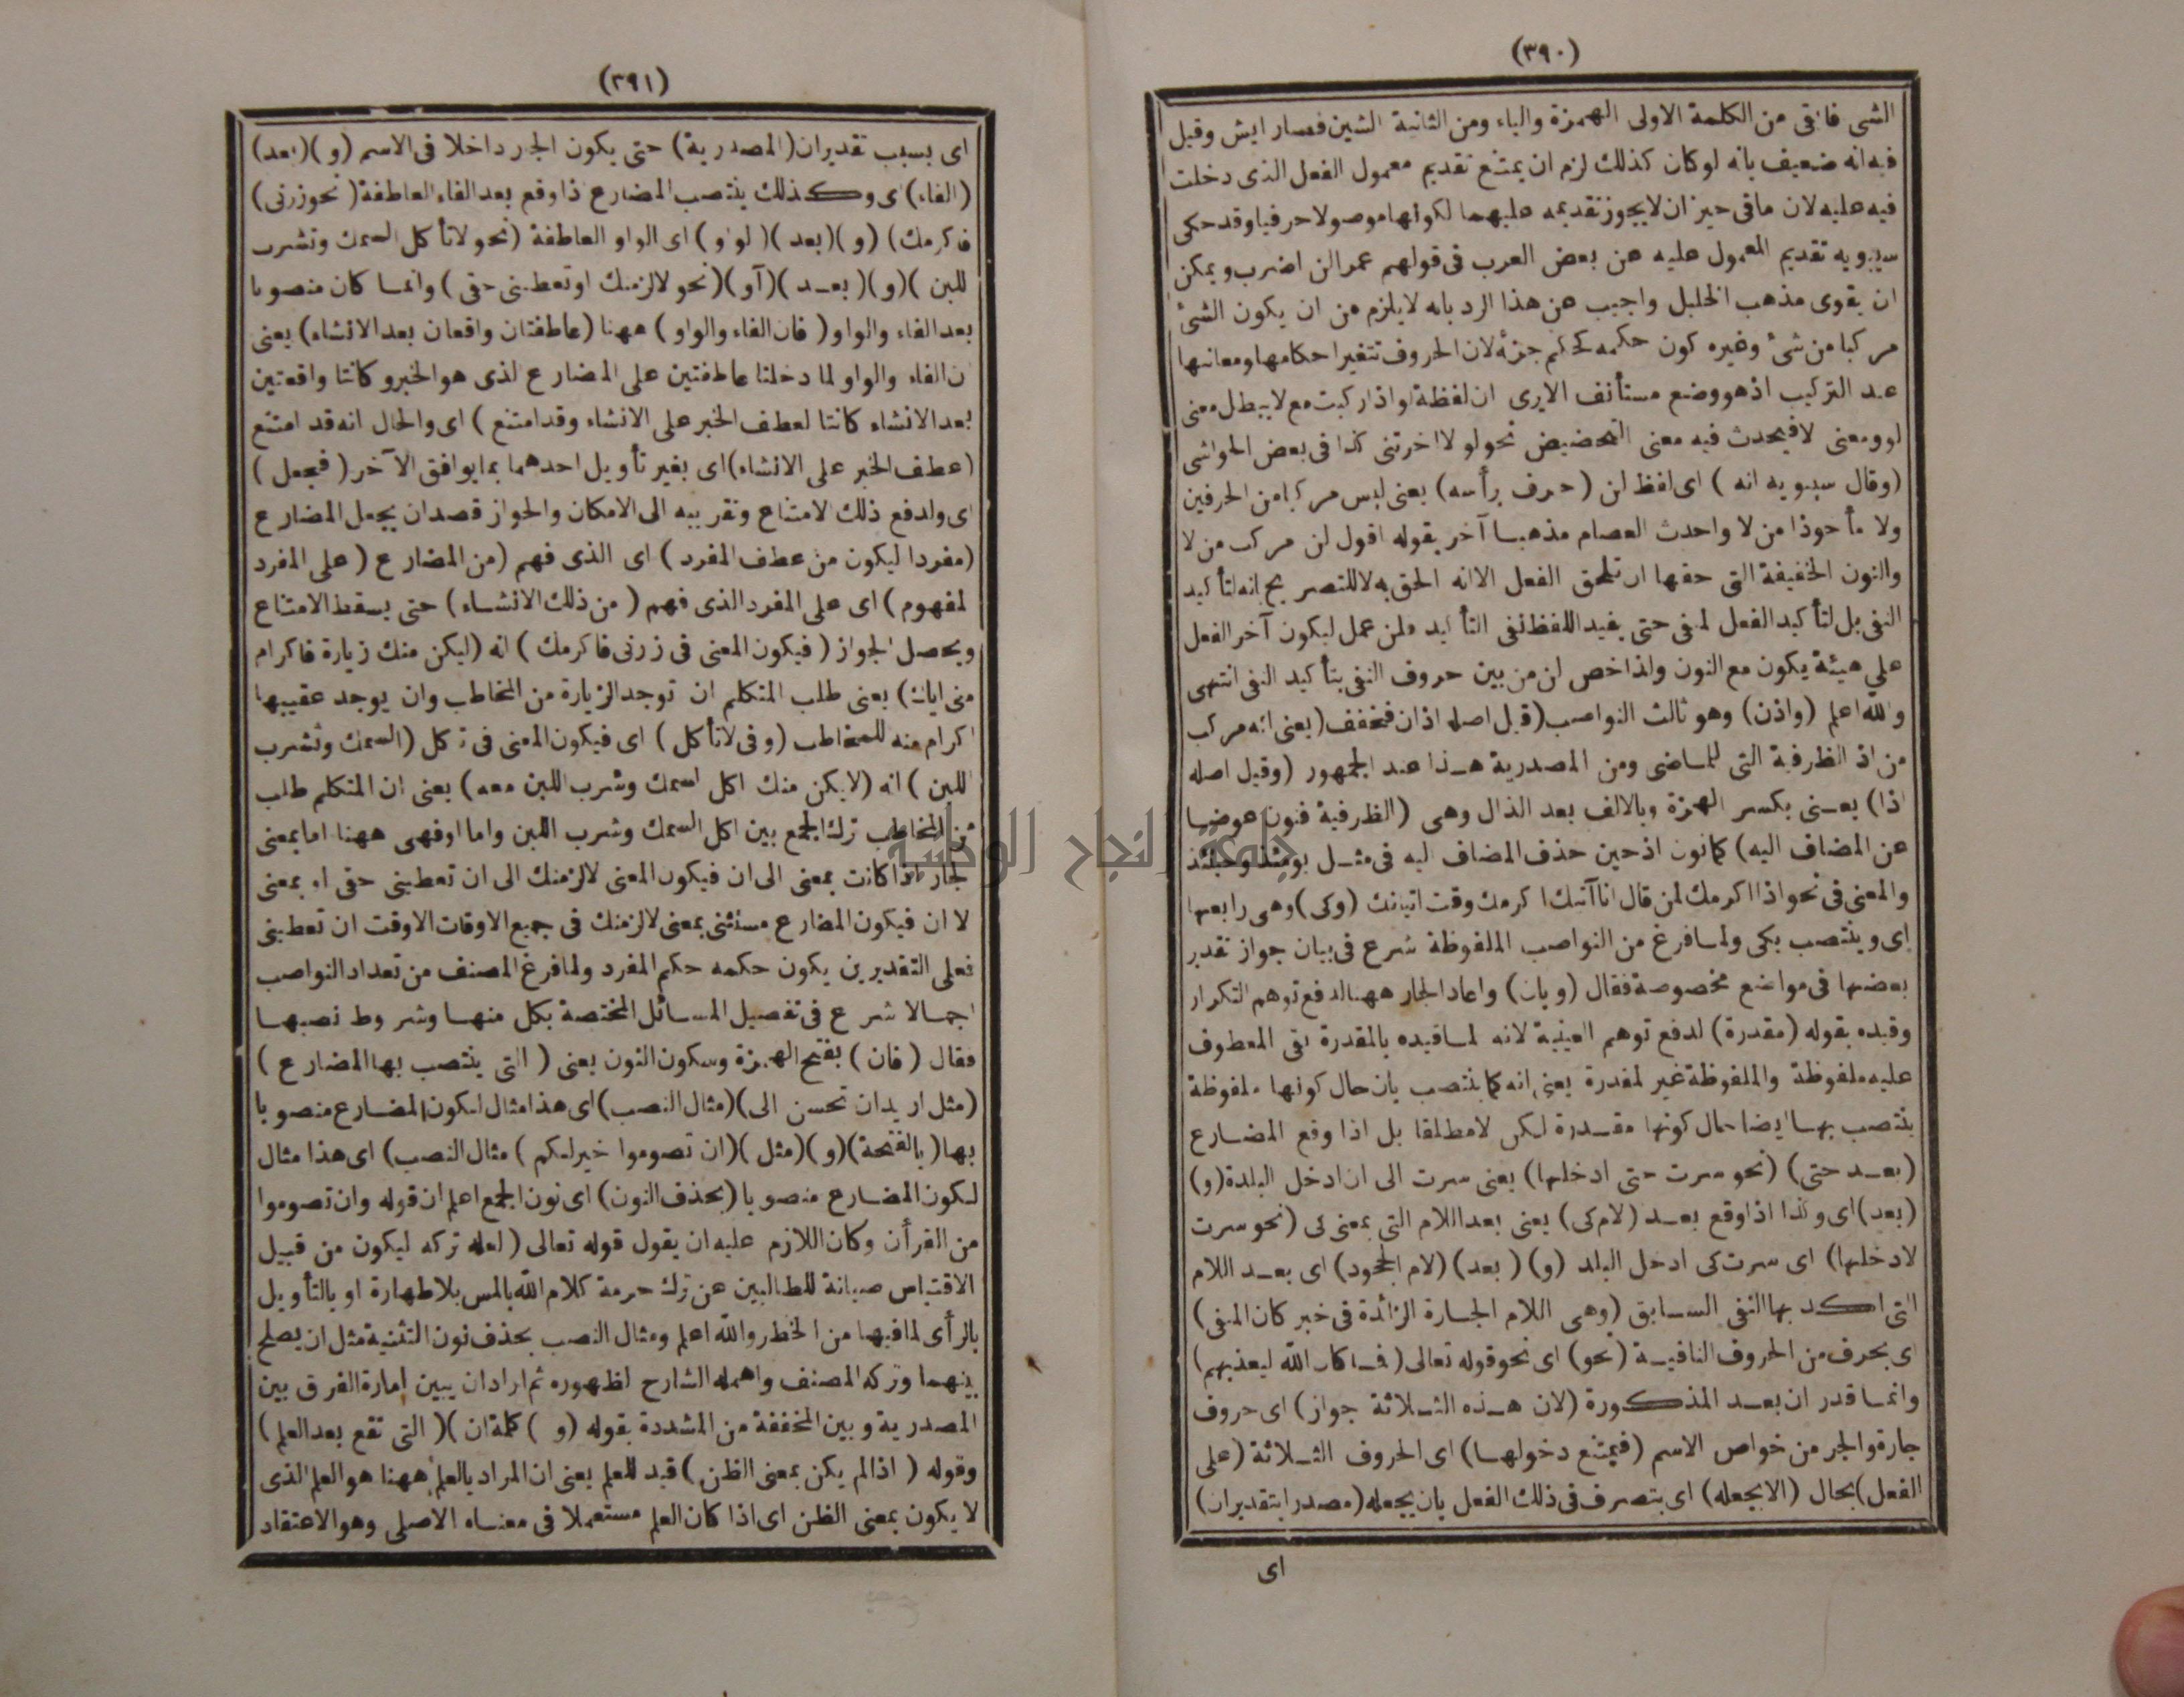 (٣٩٠)
الشى فابقى من الكلمة الاولى الهمزة والياء ومن الثانية الشين فصار ايش وقيل
فيه انه ضعيف بانه لو كان كذلك لزم ان يمتنع تقديم معمول الفعل الذى دخلت
فيه عليه لان ما فى حيز ان لا يجوز تقديمه عليهما لكونها موصولا حرفيا وقد حكى
سيبويه تقديم المعمول عليه عن بعض العرب فى قولهم عمرا لن اضرب ويمكن
ان يقوى مذهب الخليل واجيب عن هذا الرد بانه لا يلزم من ان يكون الشئ
مركبا من شئ وغيره كون حكمه كحكم جزئه لان الحروف تتغير احكامها ومعانيها
عند التركيب اذ هو وضع مستأنف الايرى ان لفظة لو اذا ركبت مع لا يبطل معنى
لو ومعنى لا فيحدث فيه معنى التحضيض نحو لولا اخرتنى كذا فى بعض الحواشى
(وقال سيبويه انه ) اى لفظ لن (حرف برأسه) يعنى ليس مركبا من الحرفين
ولا مأخوذا من لا واحدث العصام مذهبا آخر بقوله اقول لن مركب من لا
والنون الخفيفة التى حقها ان تلحق الفعل الا انه الحق به لا للتصريح بانه لتأكيد
النفى بل لتأكيد الفعل المنفى حتى يفيد اللفظ نفى التأكيد ولن عمل ليكون آخر الفعل
على هيئة يكون مع النون ولذا خص لن من بين حروف النفى بتأكيد النفى انتهى
والله اعلم (واذن) وهو ثالث النواصب (قيل اصله اذ ان فخفف) يعنى انه مركب
من اذ الظرفية التى للماضى ومن المصدرية هذا عند الجمهور (وقيل اصله
اذا) يعنى بكسر الهمزة وبالالف بعد الذال وهى (الظرفية فنون عوضا
عن المضاف اليه) كما نون اذ حين حذف المضاف اليه فى مثل يومئذ وحينئذ
والمعنى فى نحو اذا اكرمك لمن قال انا آتيك اكرمك وقت اتيانك (وكى) وهى رابعها
اى وينتصب بكى ولما فرغ من النواصب الملفوظة شرع فى بيان جواز تقدير
بعضها فى مواضع مخصوصة فقال (وبان) واعاد الجار ههنا لدفع توهم التكرار
وقيده بقوله (مقدرة) لدفع توهم العينية لانه لما قيده بالمقدرة بقى المعطوف
عليه ملفوظة والملفوظة غير لمقدرة يعنى انه كما ينتصب بان حال كونها ملفوظة
ينتصب بها ايضا حال كونها مقدرة لكن لا مطلقا بل اذا وقع المضارع
(بعد حتى) (نحو سرت حتى ادخلها) يعنى سرت الى ان ادخل البلدة (و)
(بعد) اى وكذا اذا وقع بعد (لام كى) يعنى بعد اللام التى بمعنى كى (نحو سرت
لادخلها) اى سرت كى ادخل البلد (و) (بعد) (لام الجحود) اى بعد اللام
التى اكد بها النفى السابق (وهى اللام الجارة الزائدة فى خبر كان المنفى)
اى بحرف من الحروف النافية (نحو) اى نحو قوله تعالى (فما كان الله ليعذبهم)
وانما قدر ان بعد المذكورة (لان هذه الثلاثة جواز) اى حروف
جارة والجر من خواص الاسم (فيمتنع دخولها) اى الحروف الثلاثة (على
الفعل) بحال (الا بجعله) اى بتصرف فى ذلك الفعل بان يجعله (مصدرا بتقدير ان)
اى
(٣٩١)
اى بسبب تقدير ان (المصدرية) حتى يكون الجر داخلا فى الاسم (و)(بعد)
(الفاء) اى وكذلك ينتصب المضارع اذا وقع بعد الفاء العاطفة (نحو زرنى)
فاكرمك) (و)(بعد)(الواو) اى الواو العاطفة (نحو لا تأكل السمك وتشرب
اللبن)(و)(بعد)(او)(نحو لالزمنك او تعطينى حقى) وانما كان منصوبا
بعد الفاء والواو (فان الفاء والواو) ههنا (عاطفتان واقعان بعد الانشاء) يعنى
ان الفاء والواو لما دخلتا عاطفتين على المضارع الذى هو الخبر وكانتا واقعتين
بعد الانشاء كانتا لعطف الخبر على الانشاء وقد امتنع ) اى والحال انه قد امتنع
(عطف الخبر على الانشاء) اى بغير تأويل احدهما بما يوافق الآخر (فجعل)
اى ولدفع ذلك الامتناع وتقريبه الى الامكان والجواز قصد ان يجعل المضارع
(مفردا ليكون من عطف المفرد) اى الذى فهم (من المضارع (على المفرد
المفهوم) اى على المفرد الذى فهم (من ذلك الانشاء) حتى يسقط الامتناع
ويحصل الجواز (فيكون المعنى فى زرنى فاكرمك) انه (ليكن منك زيارة فاكرام
منى اياك) يعنى طلب المتكلم ان توجد الزيارة من المخاطب وان يوجد عقيبها
اكرام منه للمخاطب (وفى لا تأكل) اى فيكون المعنى فى تركل (السمك وتشرب
اللبن) انه (لا يكن منك اكل السمك وشرب اللبن معه) يعنى ان المتكلم طلب
من المخاطب ترك الجمع بين اكل السمك وشرب اللبن واما او فهى ههنا اما بمعنى
الجار اذا كانت بمعنى الى ان فيكون المعنى لالزمنك الى ان تعطينى حقى او بمعنى
الا ان فيكون المضارع مستثنى بمعنى لالزمنك فى جميع الاوقات الا وقت ان تعطينى
فعلى التقديرين يكون حكمه حكم المفرد ولما فرغ المصنف من تعداد النواصب
اجمالا شرع فى تفصيل المسائل المختصة بكل منها وشروط نصبها
فقال (فان) بفتح الهمزة وسكون النون يعنى (التى ينتصب بها المضارع)
(مثل اريد ان تحسن الى)(مثال النصب) اى هذا مثال لكون المضارع منصوبا
بها (بالفتحة)(و)(مثل)(ان تصوموا خير لكم) مثال النصب) اى هذا مثال
لكون المضارع منصوبا (بحذف النون) اى نون الجمع اعلم ان قوله وان تصوموا
من القرأن وكان اللازم عليه ان يقول قوله تعالى (لعله تركه ليكون من قبيل
الاقتباس صيانة للطالبين عن ترك حرمة كلام الله بالمس بلا طهارة او بالتأويل
بالرأى لما فيها من الخطر والله اعلم ومثال النصب بحذف نون التثنية مثل ان يصلح
بينهما وتركه المصنف واهمله الشارح لظهوره ثم اراد ان يبين امارة الفرق بين
المصدرية وبين المخففة من المشددة بقوله (و) كلمة ان)(التى تقع بعد العلم)
وقوله (اذا لم يكن بمعنى الظن) قيد للعلم يعنى ان المراد بالعلم ههنا هو العلم الذى
لا يكون بمعنى الظن اى اذا كان العلم مستعملا فى معناه الاصلى وهو الاعتقاد
جامعة النجاح الوطنية